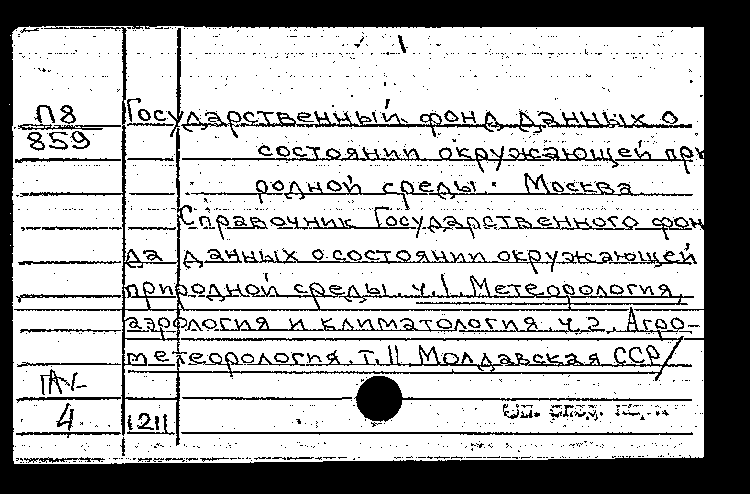 П8
859
Государственный фонд данных о
состоянии окружающей при
родной среды. Москва
Справочник Государственного фон
да данных о состоянии окружающей
природной среды. ч.1. Метеорология,
аэрология и климатология. ч.2. Агро-
метеорология. т.11. Молдавская ССР/
4
1211